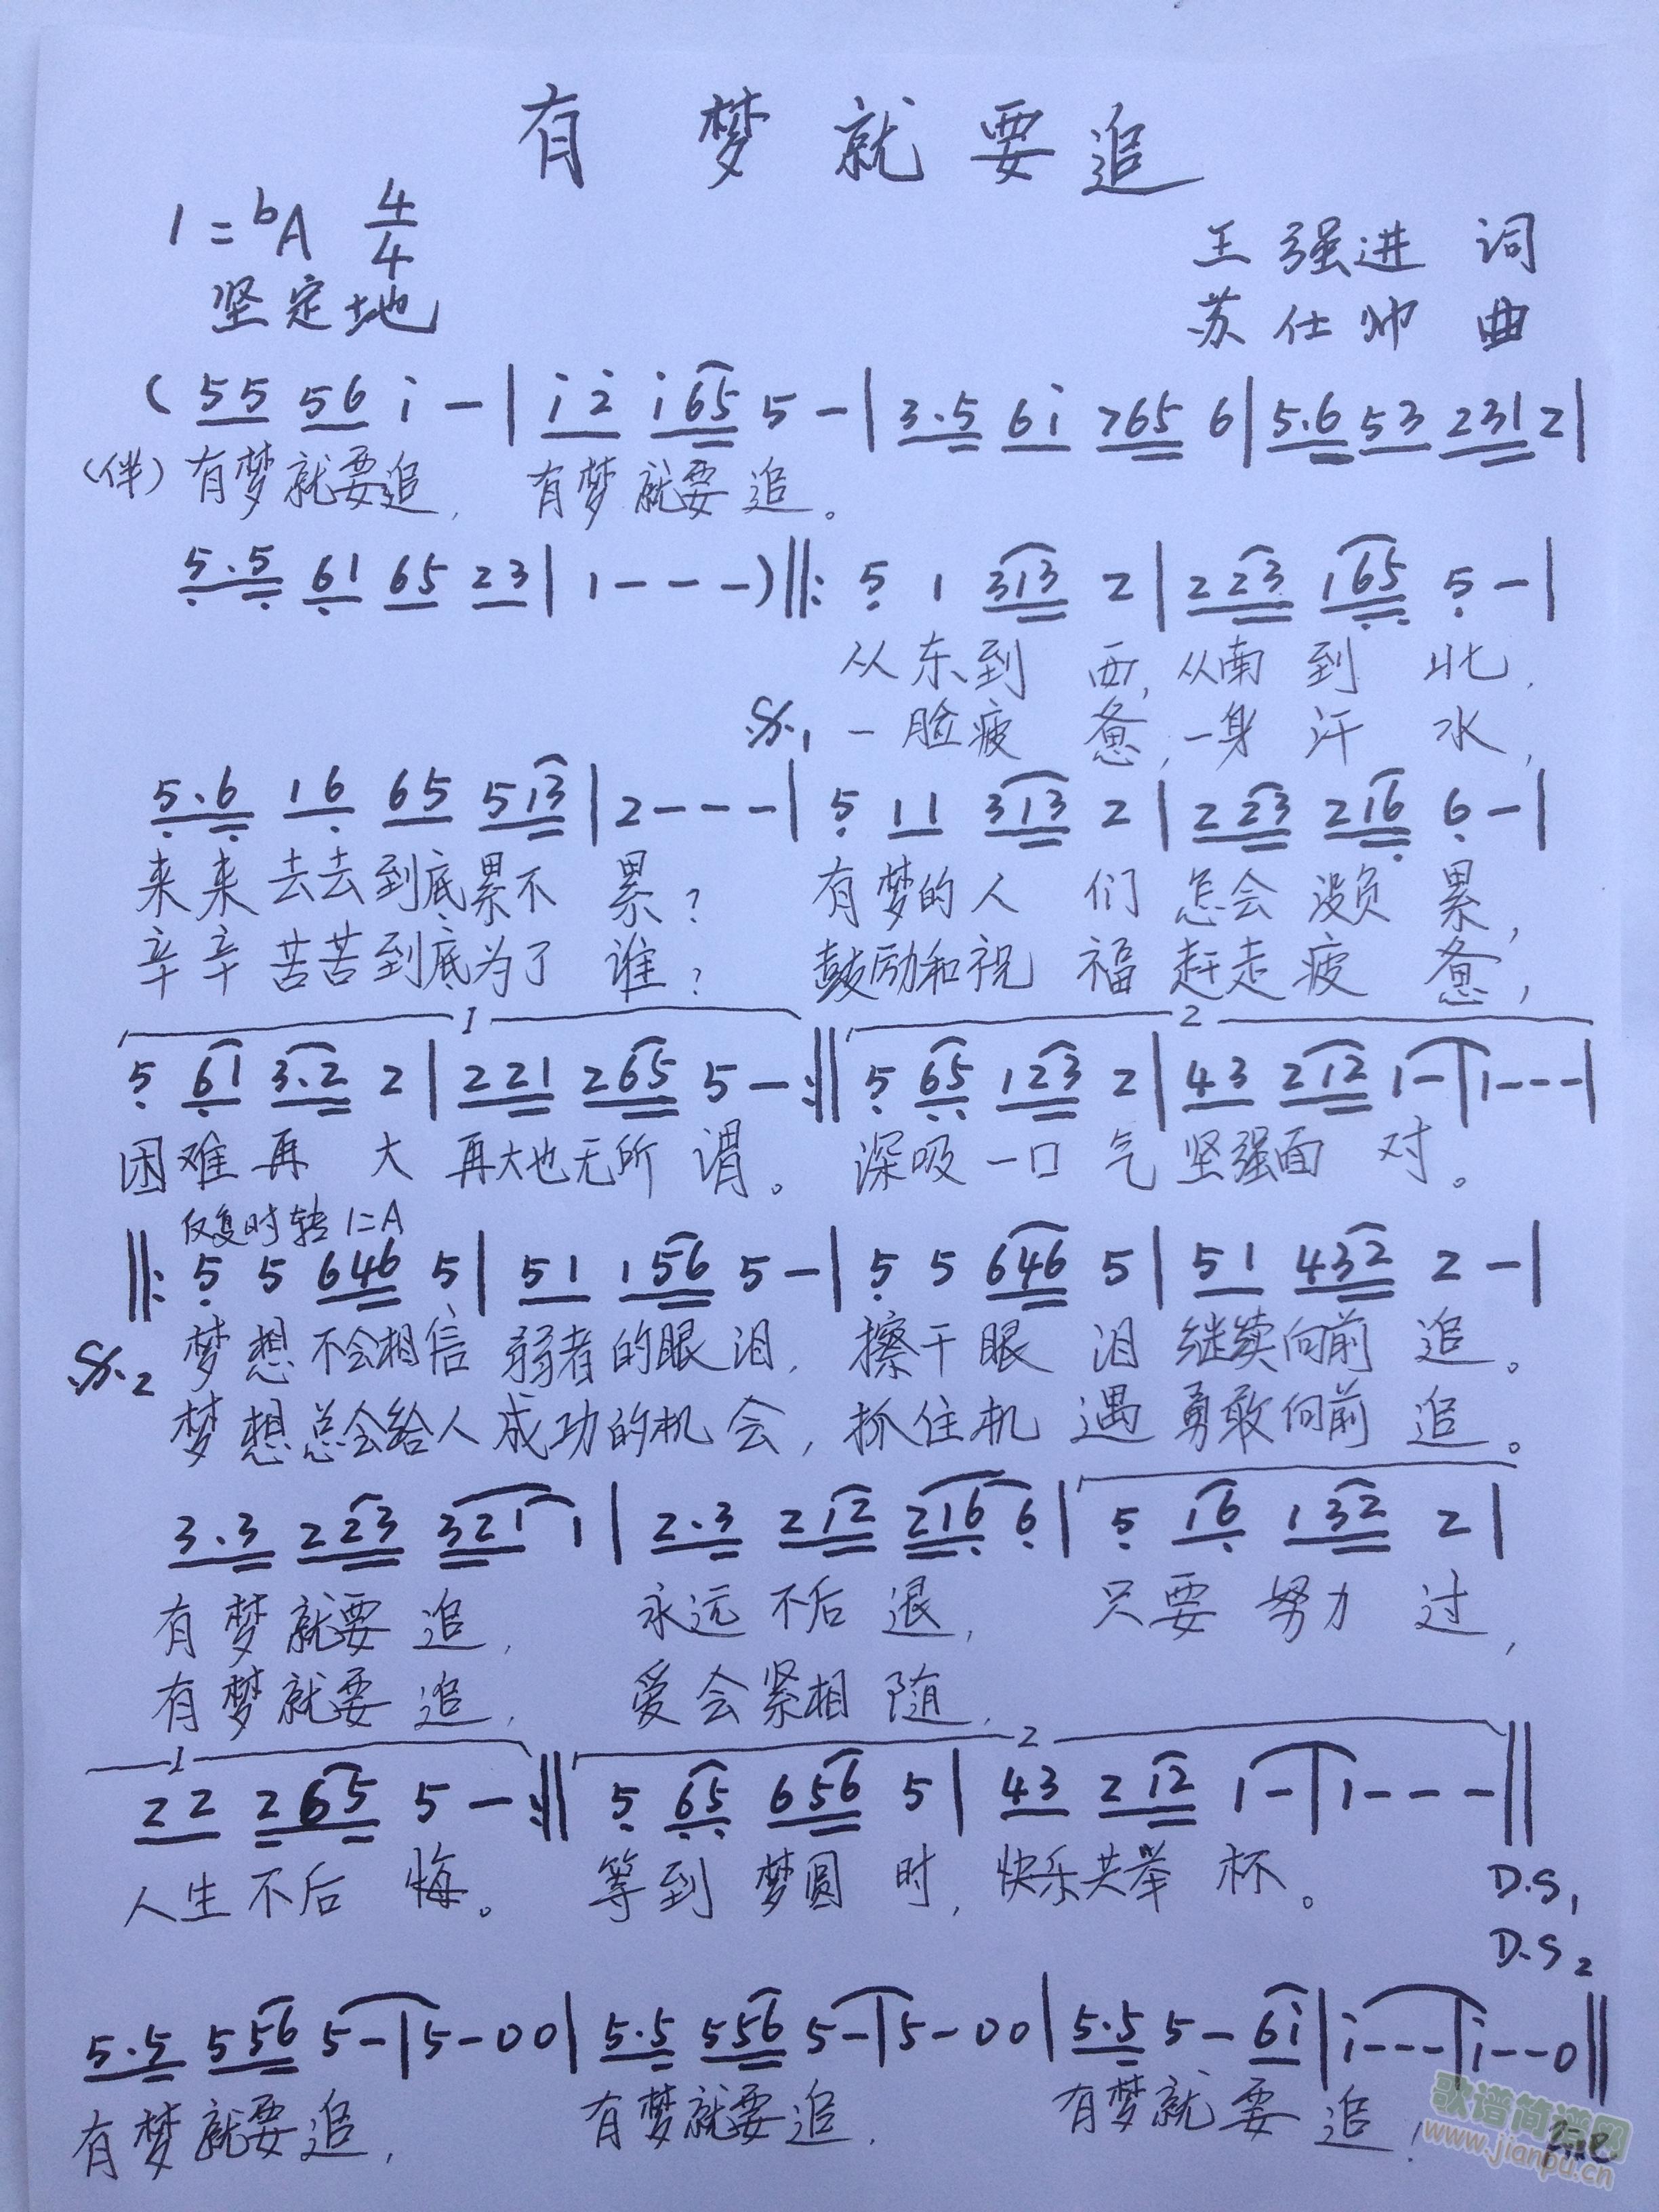 有梦就要追
1=bA 4/4
王强进 词
坚定地
苏仕帅 曲
( 55 56 i - | i 2 i 65 5 - | 3.5 6i 765 6 | 5.6 53 231 2 |
(伴) 有梦就要追, 有梦就要追。
5.5 61 65 23 | 1 - - - ) ‖: 5 1 313 2 | 223 165 5 - |
从东到西,从南到北,
𝄋1 一脸疲惫,一身汗水,
5.6 16 65 513 | 2 - - - | 5 11 313 2 | 223 216 6 - |
来来去去到底累不累? 有梦的人们怎会没负累,
辛辛苦苦到底为了谁? 鼓励和祝福赶走疲惫,
1 2
5 61 3.2 2 | 221 265 5 - :‖ 5 65 123 2 | 43 212 1 - | 1 - - - |
困难再大再大也无所谓。 深吸一口气坚强面对。
反复时转1=A
‖: 5 5 646 5 | 51 156 5 - | 5 5 646 5 | 51 432 2 - |
𝄋2 梦想不会相信弱者的眼泪, 擦干眼泪继续向前追。
梦想总会给人成功的机会, 抓住机遇勇敢向前追。
3.3 223 321 1 | 2.3 212 216 6 | 5 16 132 2 |
有梦就要追, 永远不后退, 只要努力过,
有梦就要追, 爱会紧相随,
1 2
22 265 5 - :‖ 5 65 656 5 | 43 212 1 - | 1 - - - ‖
人生不后悔。 等到梦圆时,快乐共举杯。 D.S1
D.S2
5.5 556 5 - | 5 - 0 0 | 5.5 556 5 - | 5 - 0 0 | 5.5 5 - 6i | i - - - | i - - 0 ‖
有梦就要追, 有梦就要追, 有梦就要追!
歌谱简谱网
www.jianpu.cn